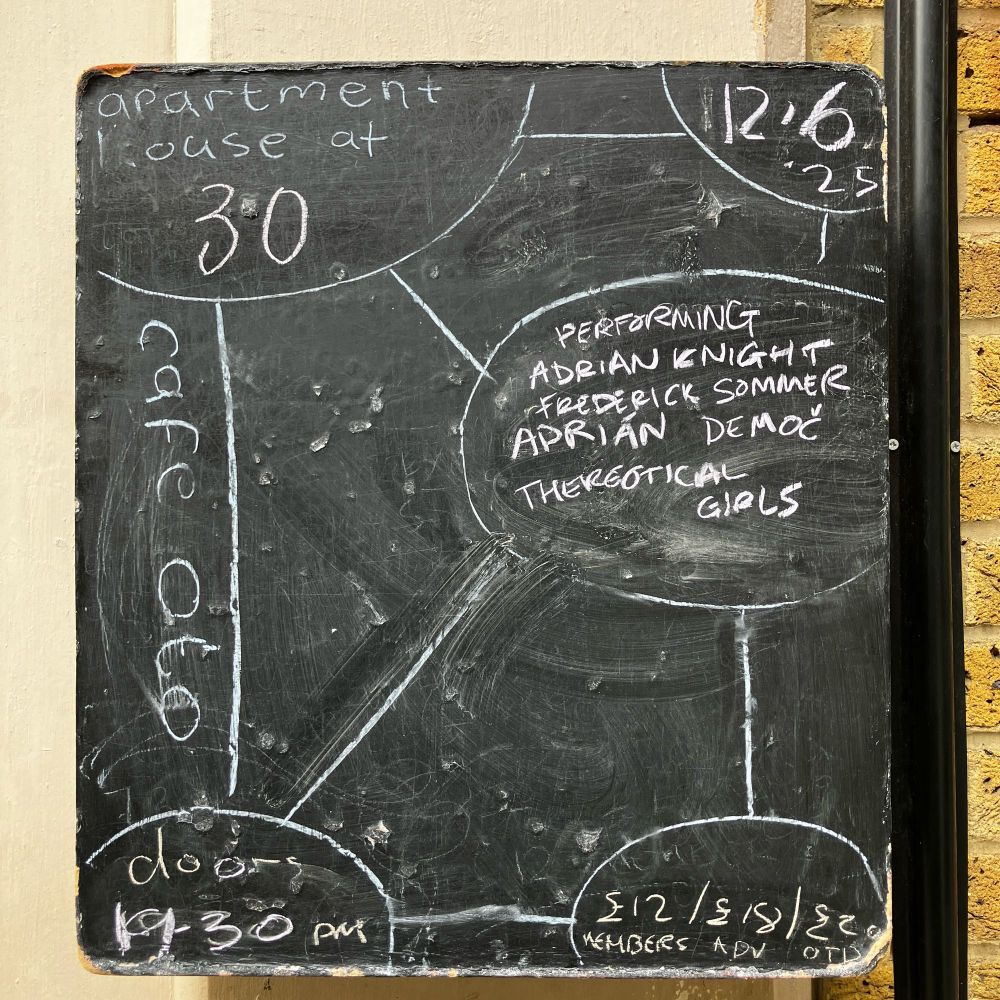 apartment
house at
30
12.6
.25
PERFORMING
ADRIAN KNIGHT
FREDERICK SOMMER
ADRIÁN DEMOČ
THEREOTICAL
GIRLS
cafe oto
doors
19-30 PM
£12 / £18 / £20
MEMBERS ADV OTD